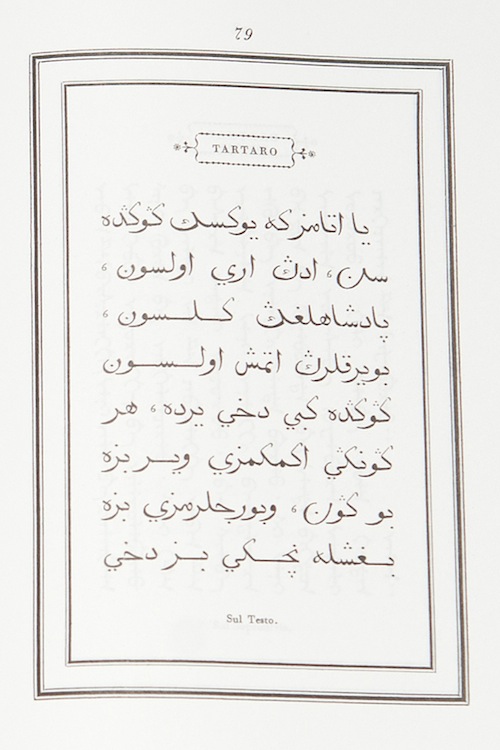 79
TARTARO
يا اتامزكه يوكسك كوڭده
سن، ادڭ اري اولسون،
پادشاهلغڭ كلسون،
بويرقلرڭ اتمش اولسون
كوڭده كبي دخي يرده، هر
كونكي اكمكمزي ويربزه
بو كون، وبورجلرمزي بزه
بغشله نچكي بز دخي
Sul Testo.